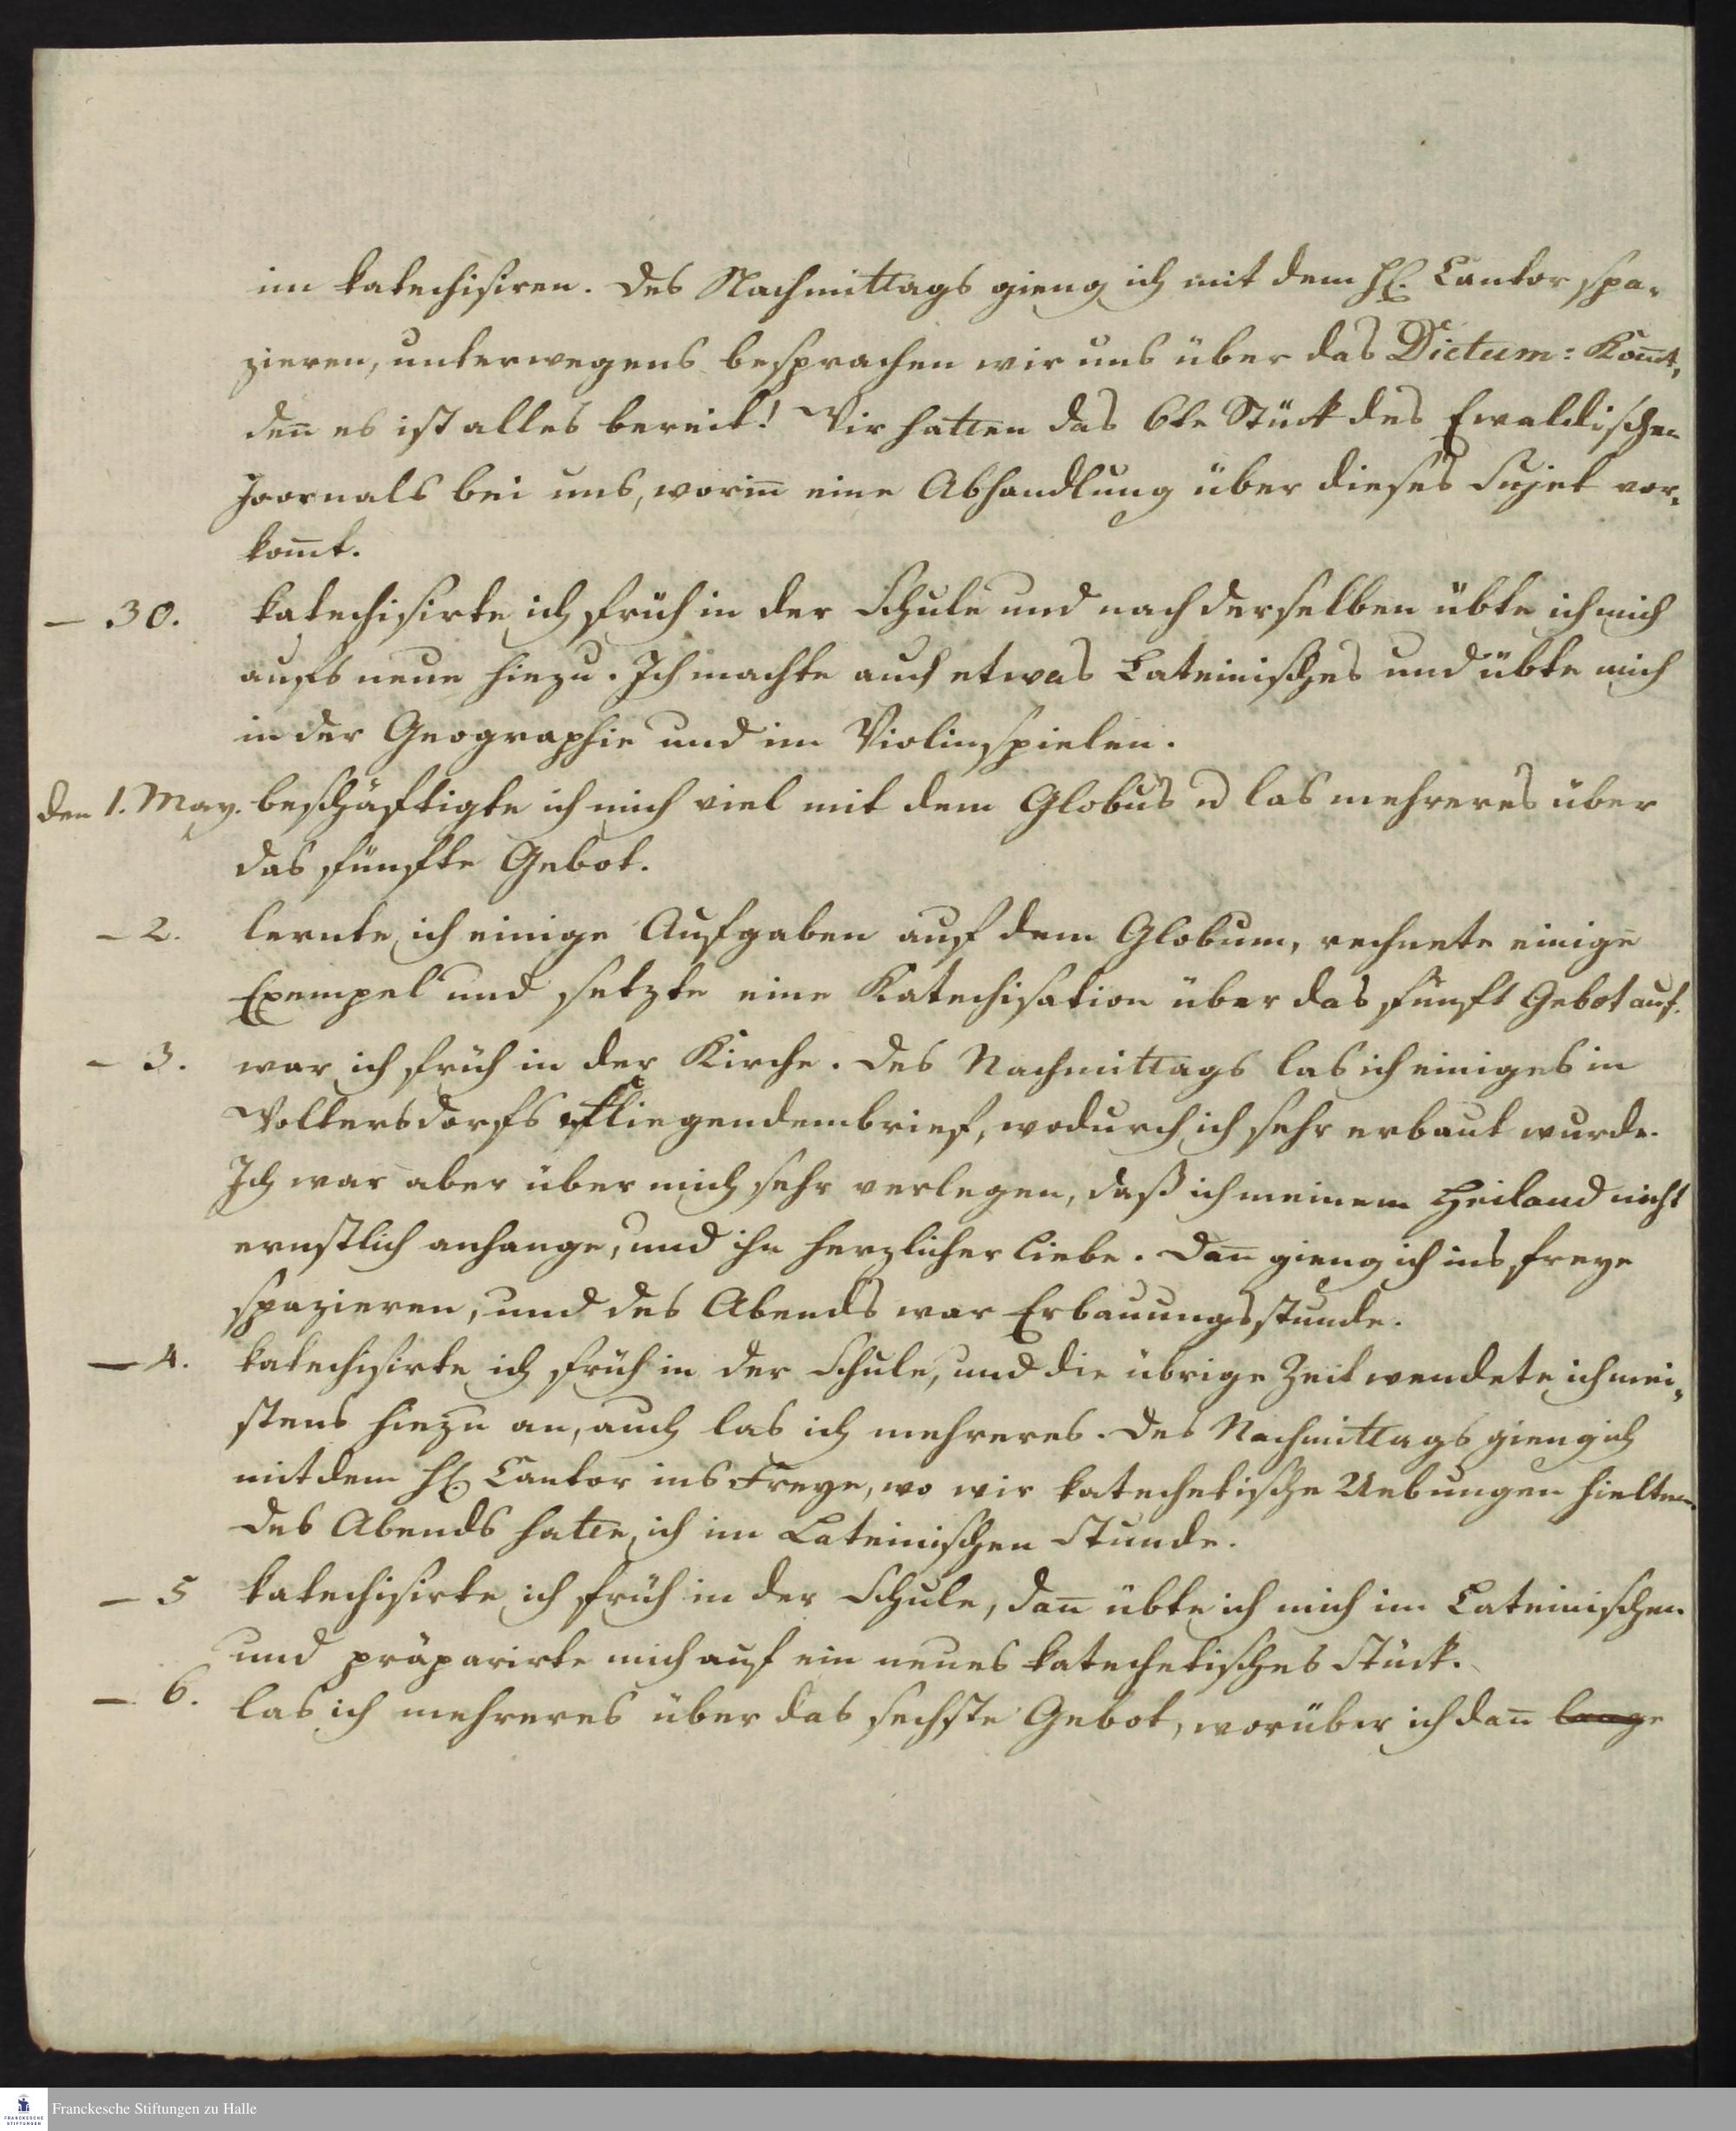 im katechisiren. Des Nachmittags gieng ich mit dem H. Cantor spa-
zieren, unterwegens besprachen wir uns über das Dictum: Kom̄t,
den̄ es ist alles bereit! Wir hatten das 6te Stück des Ewaldischen
Joornals bei uns, worin̄ eine Abhandlung über dieses Sujet vor-
kom̄t.
— 30. katechisirte ich früh in der Schule und nach derselben übte ich mich
aufs neue hiezu. Ich machte auch etwas Lateinisches und übte mich
in der Geographie und im Violinspielen.
den 1. May. beschäftigte ich mich viel mit dem Globus u las mehreres über
das fünfte Gebot.
— 2. lernte ich einige Aufgaben auf dem Globum, rechnete einige
Exempel und setzte eine Katechisation über das fünft Gebot auf.
— 3. war ich früh in der Kirche. Des Nachmittags las ich einiges in
Woltersdorfs fliegendembrief, wodurch ich sehr erbaut wurde.
Ich war aber über mich sehr verlegen, daß ich meinem Heiland nicht
ernstlich anhange, und ihn herzlicher liebe. Dan̄ gieng ich ins freye
spazieren, und des Abends war Erbauungsstunde.
— 4. katechisirte ich früh in der Schule, und die übrige Zeit wendete ich mei-
stens hiezu an, auch las ich mehreres. Des Nachmittags gieng ich
mit dem H. Cantor ins Freye, wo wir katechetische Uebungen hielten.
Des Abends hatte ich im Lateinischen Stunde.
— 5 katechisirte ich früh in der Schule, dan̄ übte ich mich im Lateinischen
und präparirte mich auf ein neues katechetisches Stück.
— 6. las ich mehreres über das sechste Gebot, worüber ich dan̄ lange
Franckesche Stiftungen zu Halle